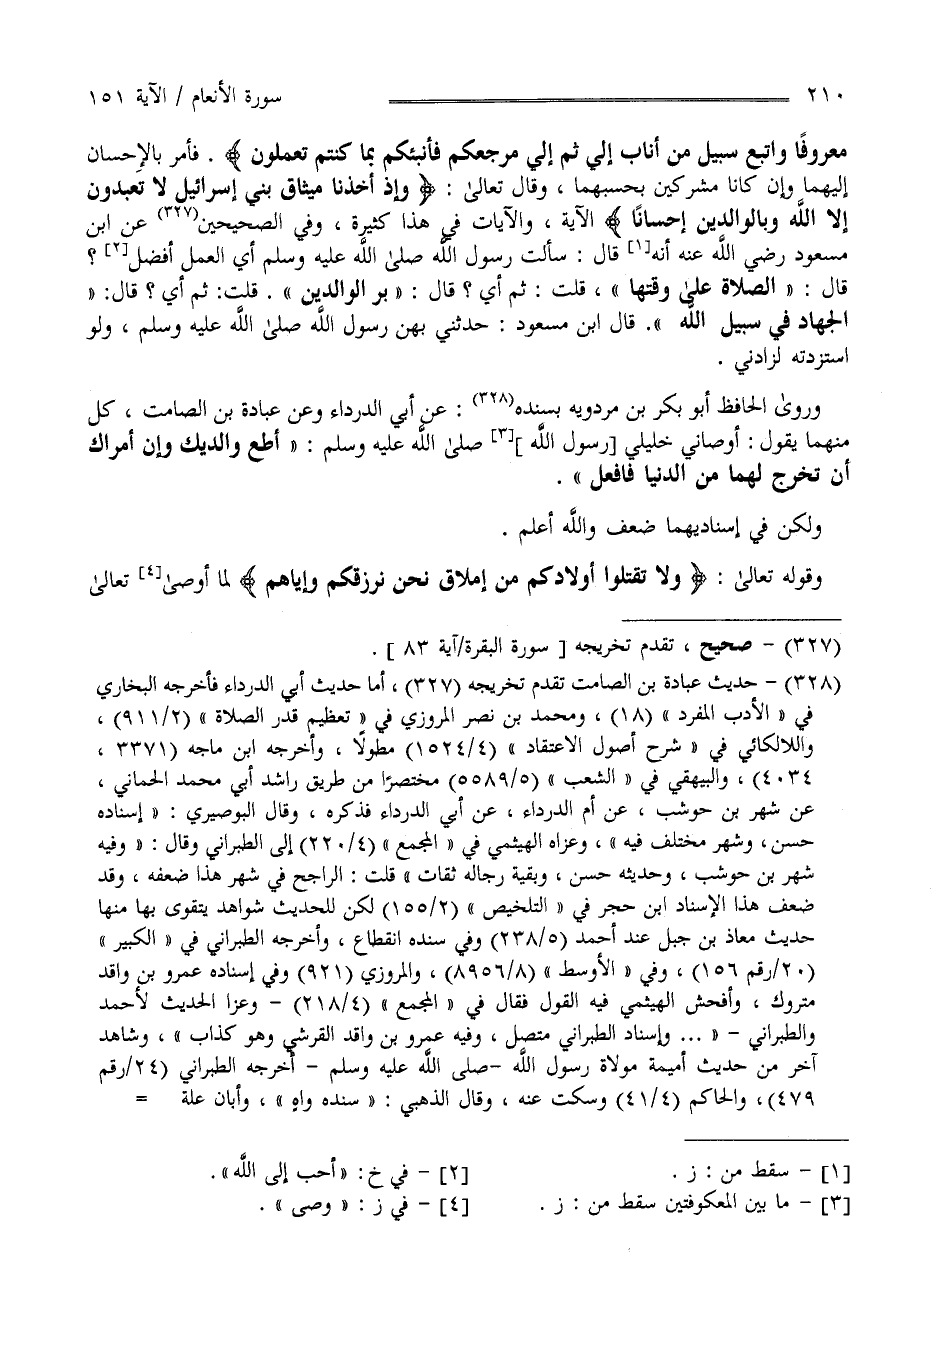 ٢١٠ سورة الأنعام / الآية ١٥١
معروفًا واتبع سبيل من أناب إلي ثم إلي مرجعكم فأنبئكم بما كنتم تعملون ﴾ . فأمر بالإحسان
إليهما وإن كانا مشركين بحسبهما ، وقال تعالىٰ : ﴿ وإذ أخذنا ميثاق بني إسرائيل لا تعبدون
إلا اللَّه وبالوالدين إحسانًا ﴾ الآية ، والآيات في هذا كثيرة ، وفي الصحيحين(٣٢٧) عن ابن
مسعود رضي اللَّه عنه أنه[١] قال : سألت رسول اللَّه صلىٰ اللَّه عليه وسلم أي العمل أفضل[٢] ؟
قال : « الصلاة علىٰ وقتها » ، قلت : ثم أي ؟ قال : « بر الوالدين » . قلت: ثم أي ؟ قال: «
الجهاد في سبيل اللَّه ». قال ابن مسعود : حدثني بهن رسول اللَّه صلىٰ اللَّه عليه وسلم ، ولو
استزدته لزادني .
وروىٰ الحافظ أبو بكر بن مردويه بسنده(٣٢٨) : عن أبي الدرداء وعن عبادة بن الصامت ، كل
منهما يقول : أوصاني خليلي [رسول اللَّه ][٣] صلىٰ اللَّه عليه وسلم : « أطع والديك وإن أمراك
أن تخرج لهما من الدنيا فافعل » .
ولكن في إسناديهما ضعف واللَّه أعلم .
وقوله تعالىٰ : ﴿ ولا تقتلوا أولادكم من إملاق نحن نرزقكم وإياهم ﴾ لما أوصىٰ[٤] تعالىٰ
(٣٢٧) – صحيح ، تقدم تخريجه [ سورة البقرة/آية ٨٣ ] .
(٣٢٨) – حديث عبادة بن الصامت تقدم تخريجه (٣٢٧) ، أما حديث أبي الدرداء فأخرجه البخاري
في « الأدب المفرد » (١٨) ، ومحمد بن نصر المروزي في « تعظيم قدر الصلاة » (٩١١/٢) ،
واللالكائي في « شرح أصول الاعتقاد » (١٥٢٤/٤) مطولًا ، وأخرجه ابن ماجه (٣٣٧١ ،
٤٠٣٤) ، والبيهقي في « الشعب » (٥٥٨٩/٥) مختصرًا من طريق راشد أبي محمد الحماني ،
عن شهر بن حوشب ، عن أم الدرداء ، عن أبي الدرداء فذكره ، وقال البوصيري : « إسناده
حسن، وشهر مختلف فيه » ، وعزاه الهيثمي في « المجمع » (٢٢٠/٤) إلى الطبراني وقال : « وفيه
شهر بن حوشب ، وحديثه حسن ، وبقية رجاله ثقات » قلت : الراجح في شهر هذا ضعفه ، وقد
ضعف هذا الإسناد ابن حجر في « التلخيص » (١٥٥/٢) لكن للحديث شواهد يتقوى بها منها
حديث معاذ بن جبل عند أحمد (٢٣٨/٥) وفي سنده انقطاع ، وأخرجه الطبراني في « الكبير »
(٢٠/رقم ١٥٦) ، وفي « الأوسط » (٨٩٥٦/٨) ، والمروزي (٩٢١) وفي إسناده عمرو بن واقد
متروك ، وأفحش الهيثمي فيه القول فقال في « المجمع » (٢١٨/٤) – وعزا الحديث لأحمد
والطبراني – « ... وإسناد الطبراني متصل ، وفيه عمرو بن واقد القرشي وهو كذاب » ، وشاهد
آخر من حديث أميمة مولاة رسول اللَّه –صلى اللَّه عليه وسلم – أخرجه الطبراني (٢٤/رقم
٤٧٩)، والحاكم (٤١/٤) وسكت عنه ، وقال الذهبي : « سنده واهٍ » ، وأبان علة =
[١] – سقط من : ز . [٢] – في خ: «أحب إلى اللَّه».
[٣] – ما بين المعكوفتين سقط من : ز . [٤] – في ز : « وصى » .